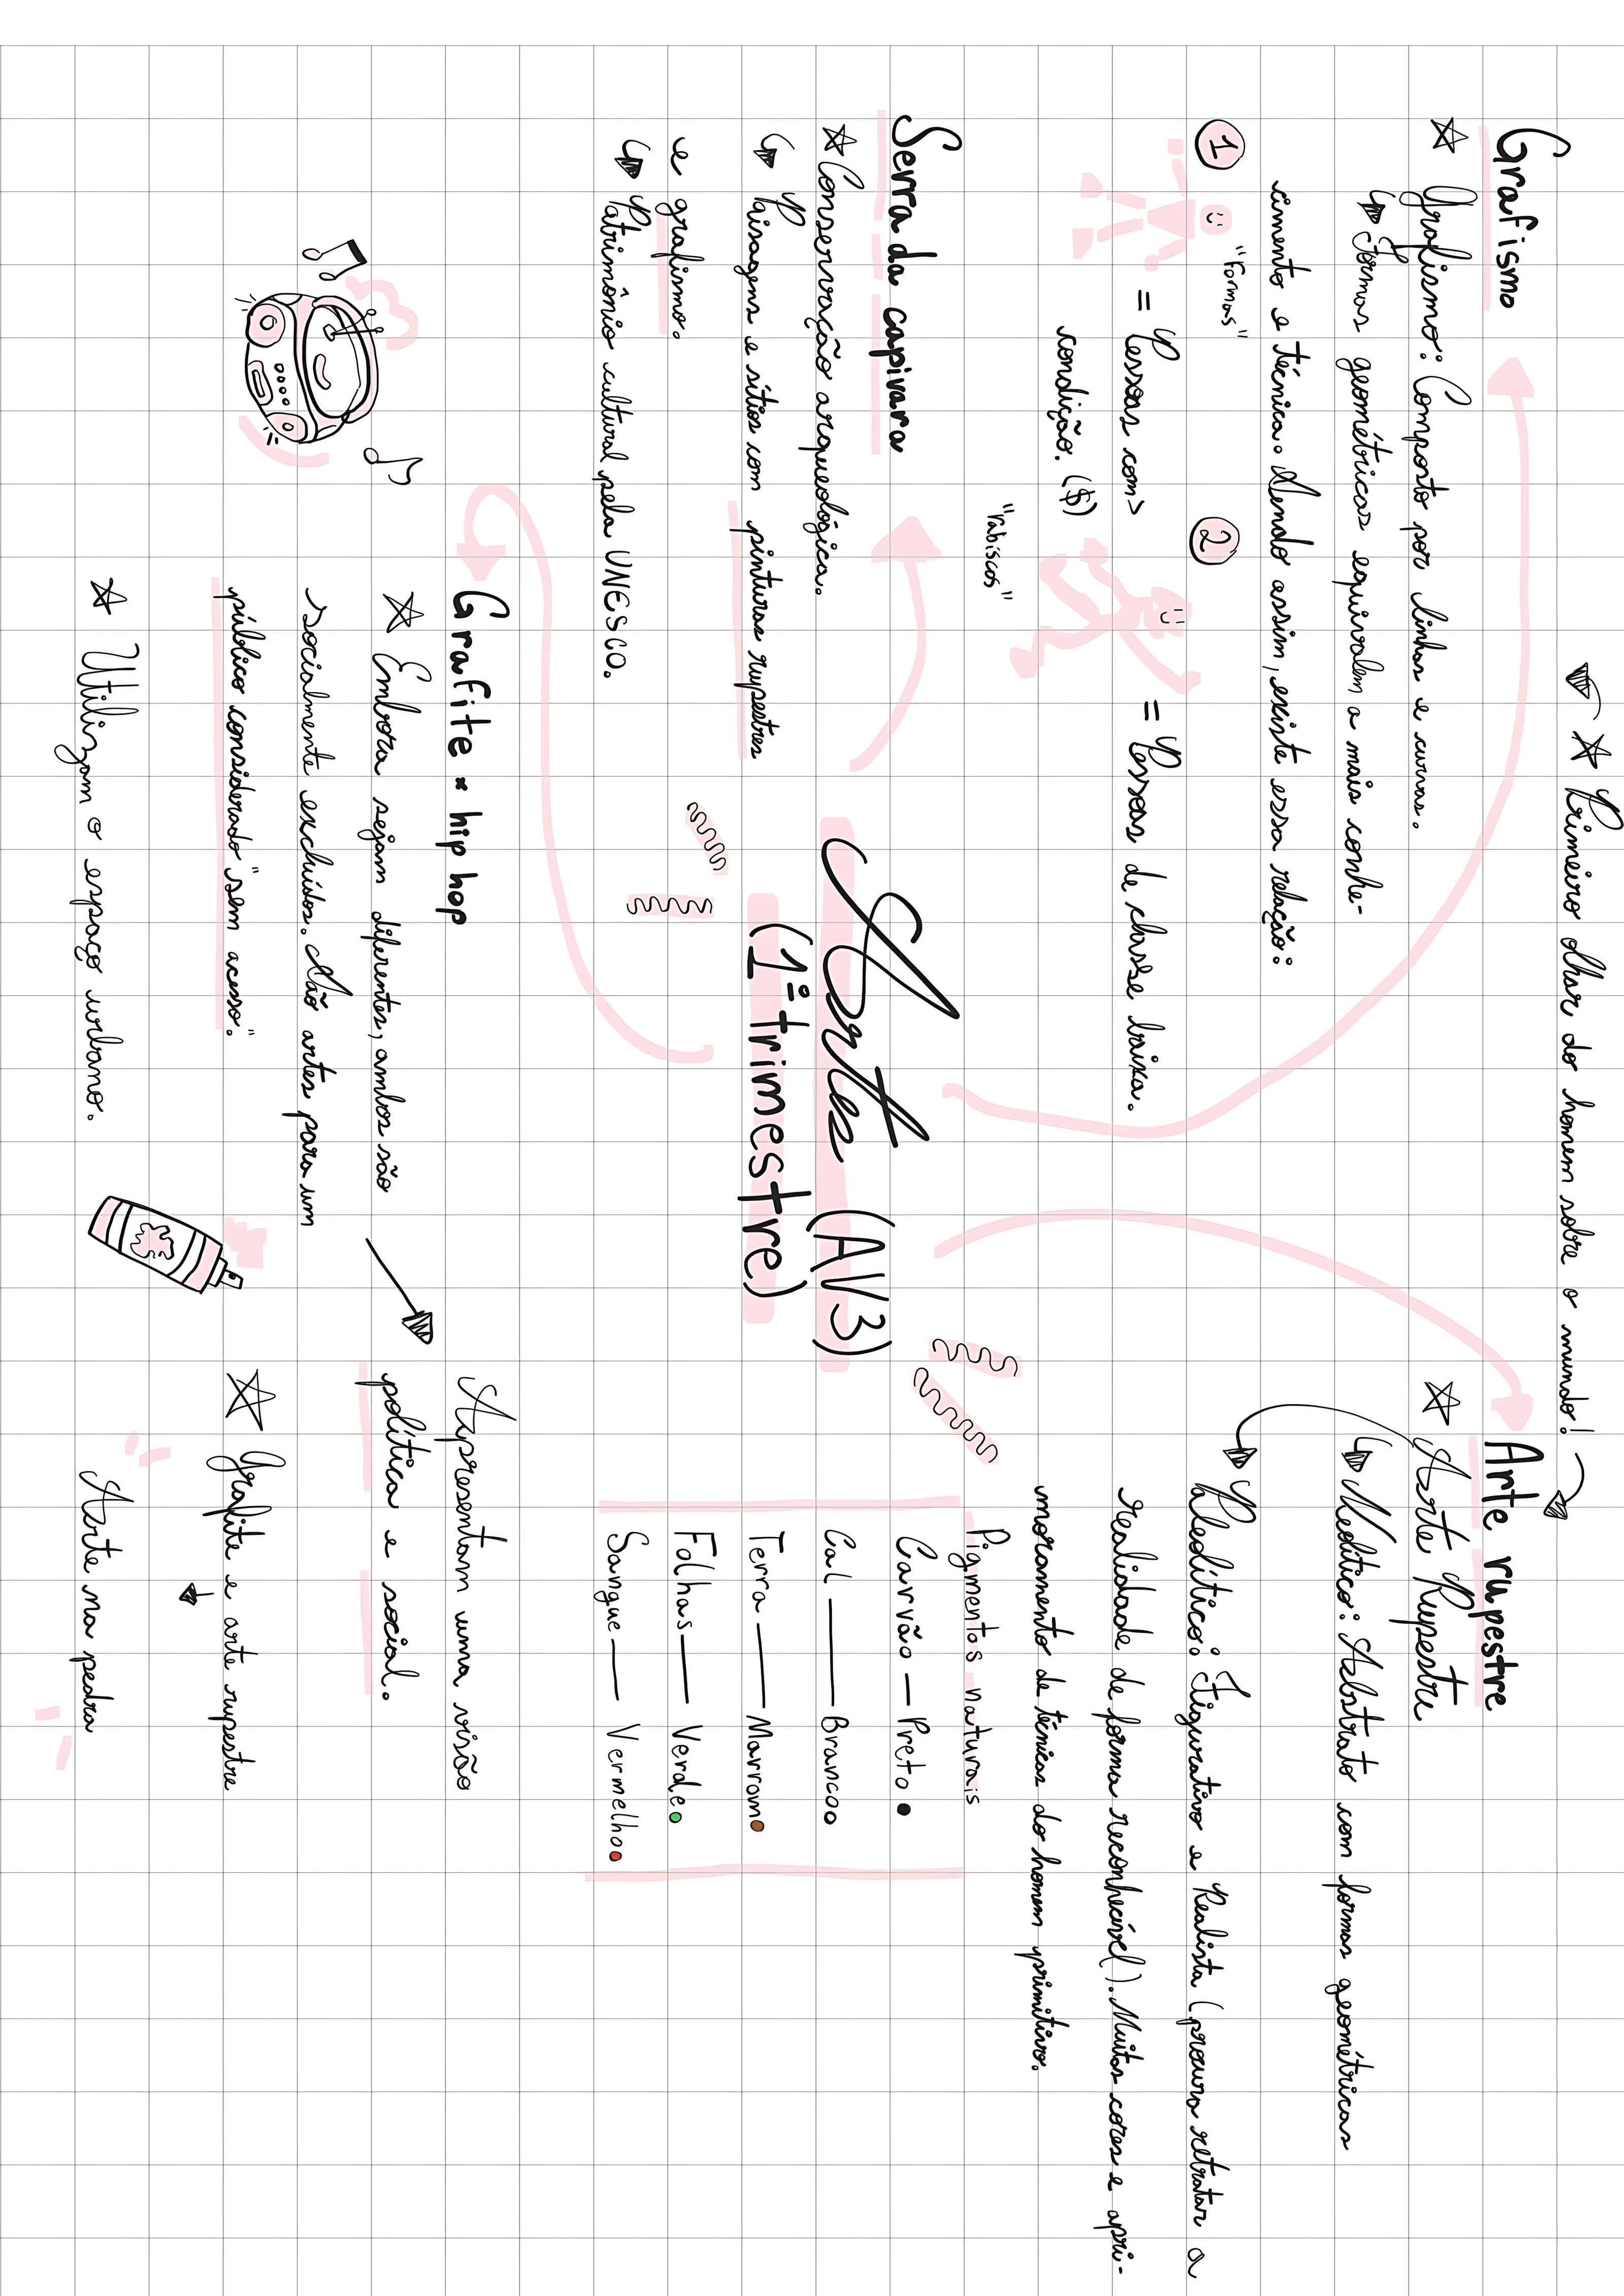 ★ Primeiro olhar do homem sobre o mundo!
Grafismo
★ Grafismo: Composto por linhas e curvas.
Formas geométricas equivalem a mais conhe-
cimento e técnica. Sendo assim, existe essa relação:
1
"Formas"
= Pessoas com >
condição. ($)
2
"rabiscos"
= Pessoas de classe baixa.
Arte rupestre
★ Arte Rupestre
Neolítico: Abstrato com formas geométricas
Paleolítico: Figurativo e Realista (procura retratar a
realidade de forma reconhecível). Muitas cores e apri-
moramento de técnicas do homem primitivo.
Pigmentos naturais
Carvão — Preto
Cal — Branco
Terra — Marrom
Folhas — Verde
Sangue — Vermelho
Serra da capivara
★ Conservação arqueológica.
Paisagens e sítios com pinturas rupestres
e grafismo.
Patrimônio cultural pela UNESCO.
Artes (AV3)
(1º trimestre)
Grafite × hip hop
★ Embora sejam diferentes, ambos são
socialmente excluídos. São artes para um
público considerado "sem acesso".
★ Utilizam o espaço urbano.
Apresentam uma visão
política e social.
★ Grafite e arte rupestre
Arte na pedra